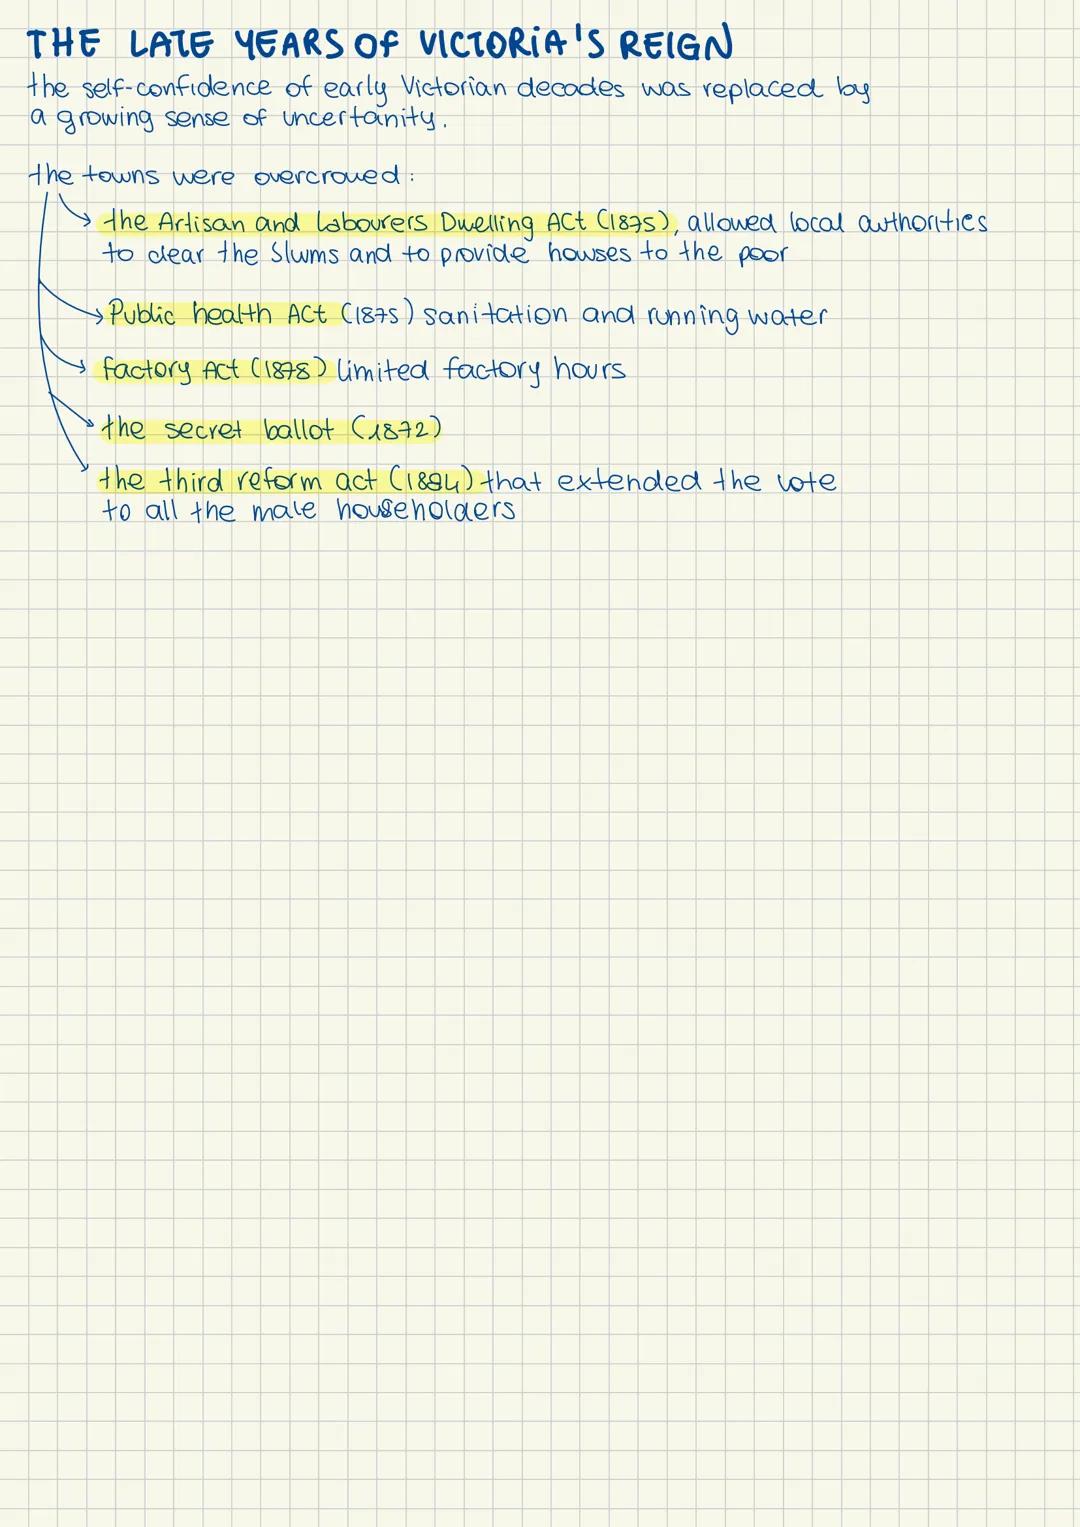 THE LATE YEARS OF VICTORIA'S REIGN
the self-confidence of early Victorian decades was replaced by
a growing sense of uncertanity.
the towns were overcroued:
the Artisan and Labourers Dwelling Act (1875), allowed local authorities
to clear the Slums and to provide houses to the poor
Public health Act (1875) sanitation and running water
factory Act (1878) limited factory hours
the secret ballot (1872)
the third reform act (1884) that extended the vote
to all the male householders